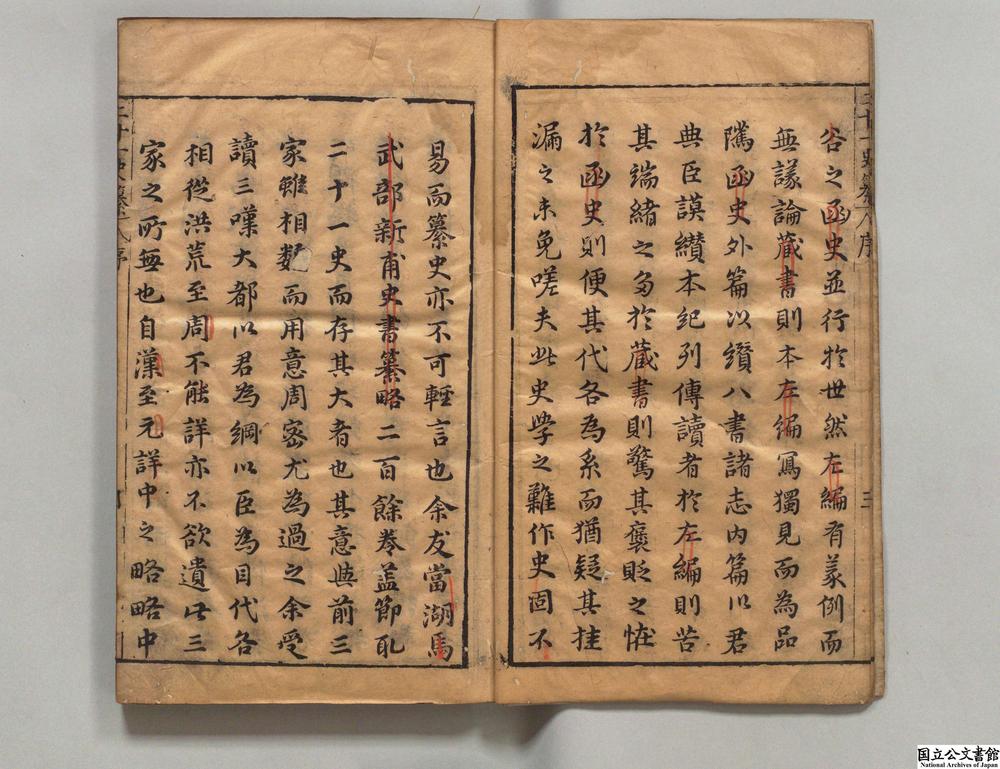 谷之函史並行於世然左編有義例而
無議論藏書則本左編寫獨見而為品
隲函史外篇以纘八書諸志內篇以君
典臣謨纘本紀列傳讀者於左編則苦
其端緒之多於藏書則驚其褒貶之恠
於函史則便其代各為系而猶疑其挂
漏之未免嗟夫此史學之難作史固不
易而纂史亦不可輕言也余友當湖馬
武部新甫史書纂略二百餘卷蓋節取
二十一史而存其大者也其意與前三
家雖相類而用意周密尤為過之余受
讀三嘆大都以君為綱以臣為目代各
相從洪荒至周不能詳亦不欲遺此三
家之所無也自漢至元詳中之略略中
国立公文書館
National Archives of Japan